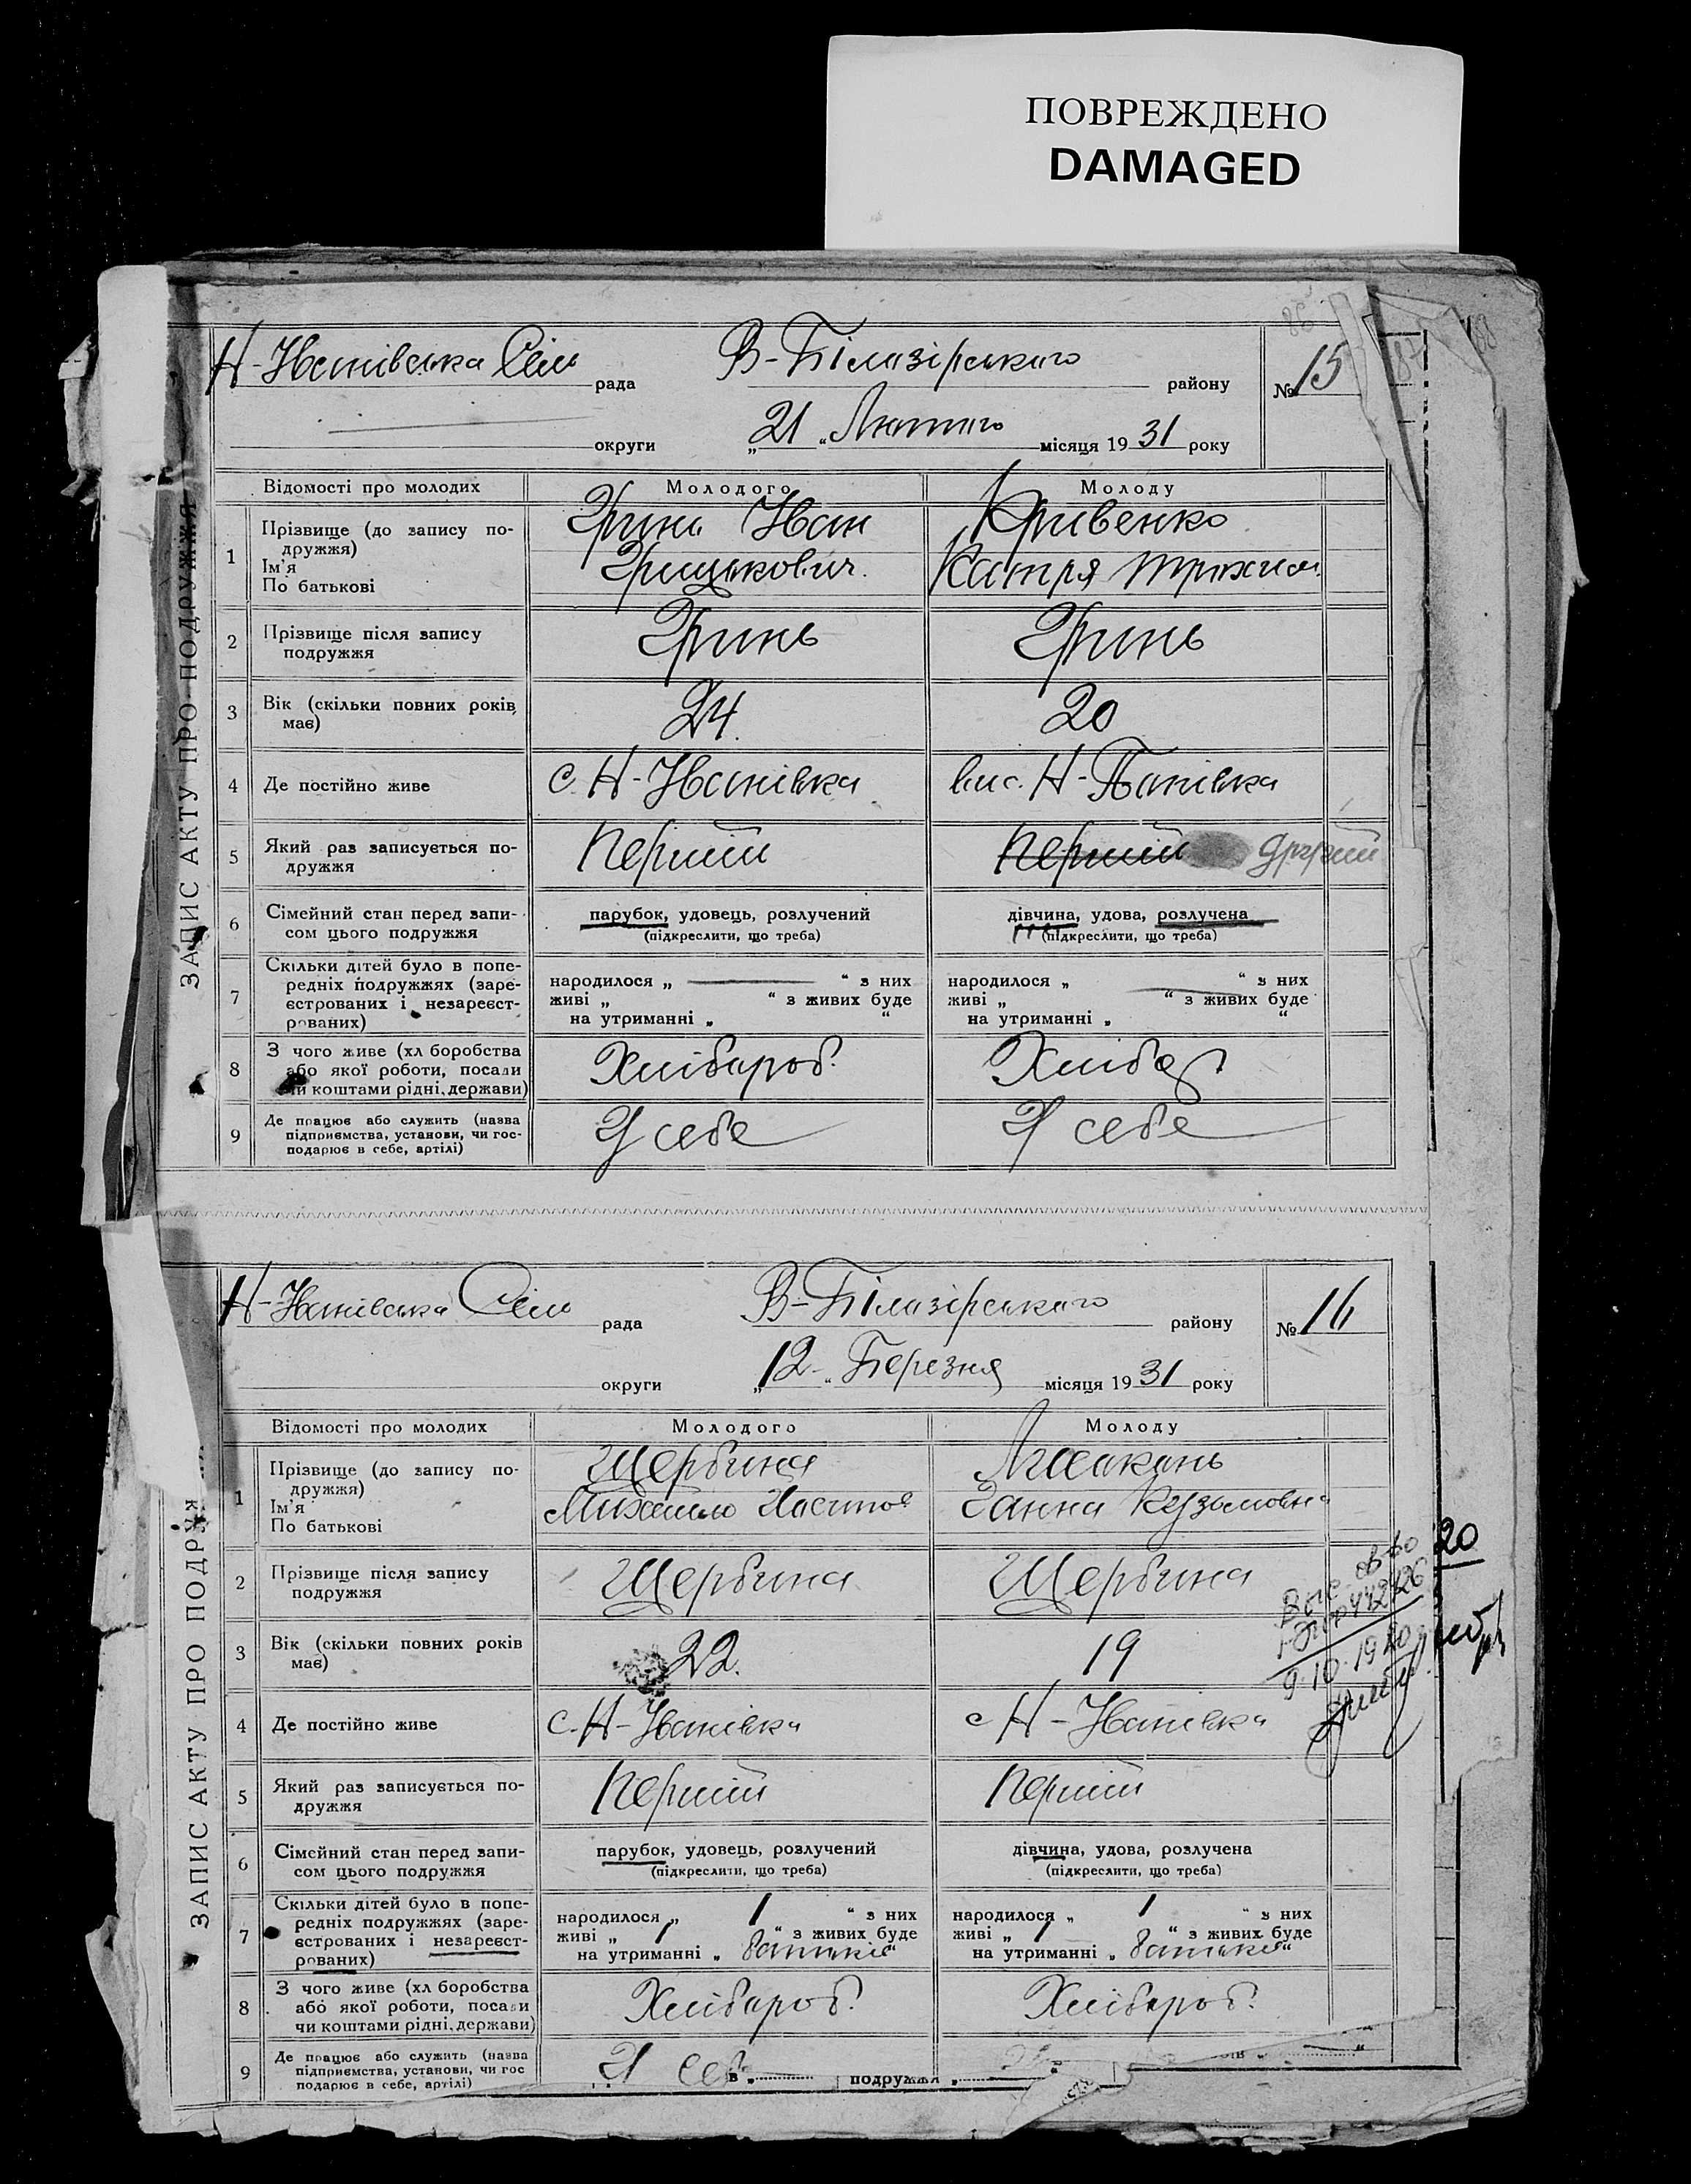 ПОВРЕЖДЕНО
DAMAGED
ЗАПИС АКТУ ПРО ПОДРУЖЖЯ
Н-Іванівська Сіль рада В-Білозірського району № 15
округи „ 21 " Лютого місяця 19 31 року
Відомості про молодих Молодого Молоду
1 Прізвище (до запису по-
дружжя)
Ім'я
По батькові
Гринь Іван
Грицькович.
Кривенко
Катря Трохим.
2 Прізвище після запису
подружжя
Гринь Гринь
3 Вік (скільки повних років,
має)
24. 20
4 Де постійно живе с. Н-Іванівка вис. Н-Панівка
5 Який раз записується по-
дружжя
Перший Перший другий
6 Сімейний стан перед запи-
сом цього подружжя
парубок, удовець, розлучений
(підкреслити, що треба)
дівчина, удова, розлучена
(підкреслити, що треба)
7 Скільки дітей було в попе-
редніх подружжях (заре-
єстрованих і незареєст-
рованих)
народилося „ — “ з них
живі „ “ з живих буде
на утриманні „ “
народилося „ “ з них
живі „ — “ з живих буде
на утриманні „ “
8 З чого живе (хл боробства
або якої роботи, посади
чи коштами рідні, держави)
Хлібороб. Хлібор
9 Де працює або служить (назва
підприємства, установи, чи гос-
подарює в себе, артілі)
У себе У себе
ЗАПИС АКТУ ПРО ПОДРУЖ
Н-Іванівська Сіль рада В-Білозірського району № 16
округи „ 12 " Березня місяця 19 31 року
Відомості про молодих Молодого Молоду
1 Прізвище (до запису по-
дружжя)
Ім'я
По батькові
Щербина
Михайло
Ганна Кузьмовна
2 Прізвище після запису
подружжя
Щербина Щербина
20
9.10.19
3 Вік (скільки повних років
має)
22. 19
4 Де постійно живе с. Н-Іванівка с Н-Іванівка
5 Який раз записується по-
дружжя
Перший Перший
6 Сімейний стан перед запи-
сом цього подружжя
парубок, удовець, розлучений
(підкреслити, що треба)
дівчина, удова, розлучена
(підкреслити, що треба)
7 Скільки дітей було в попе-
редніх подружжях (заре-
єстрованих і незареєст-
рованих)
народилося „ 1 “ з них
живі „ 1 “ з живих буде
на утриманні „ батьків “
народилося „ 1 “ з них
живі „ 1 “ з живих буде
на утриманні „ батьків “
8 З чого живе (хл боробства
або якої роботи, посади
чи коштами рідні, держави)
Хлібороб. Хлібороб.
9 Де працює або служить (назва
підприємства, установи, чи гос
подарює в себе, артілі)
У себ
подружжя „